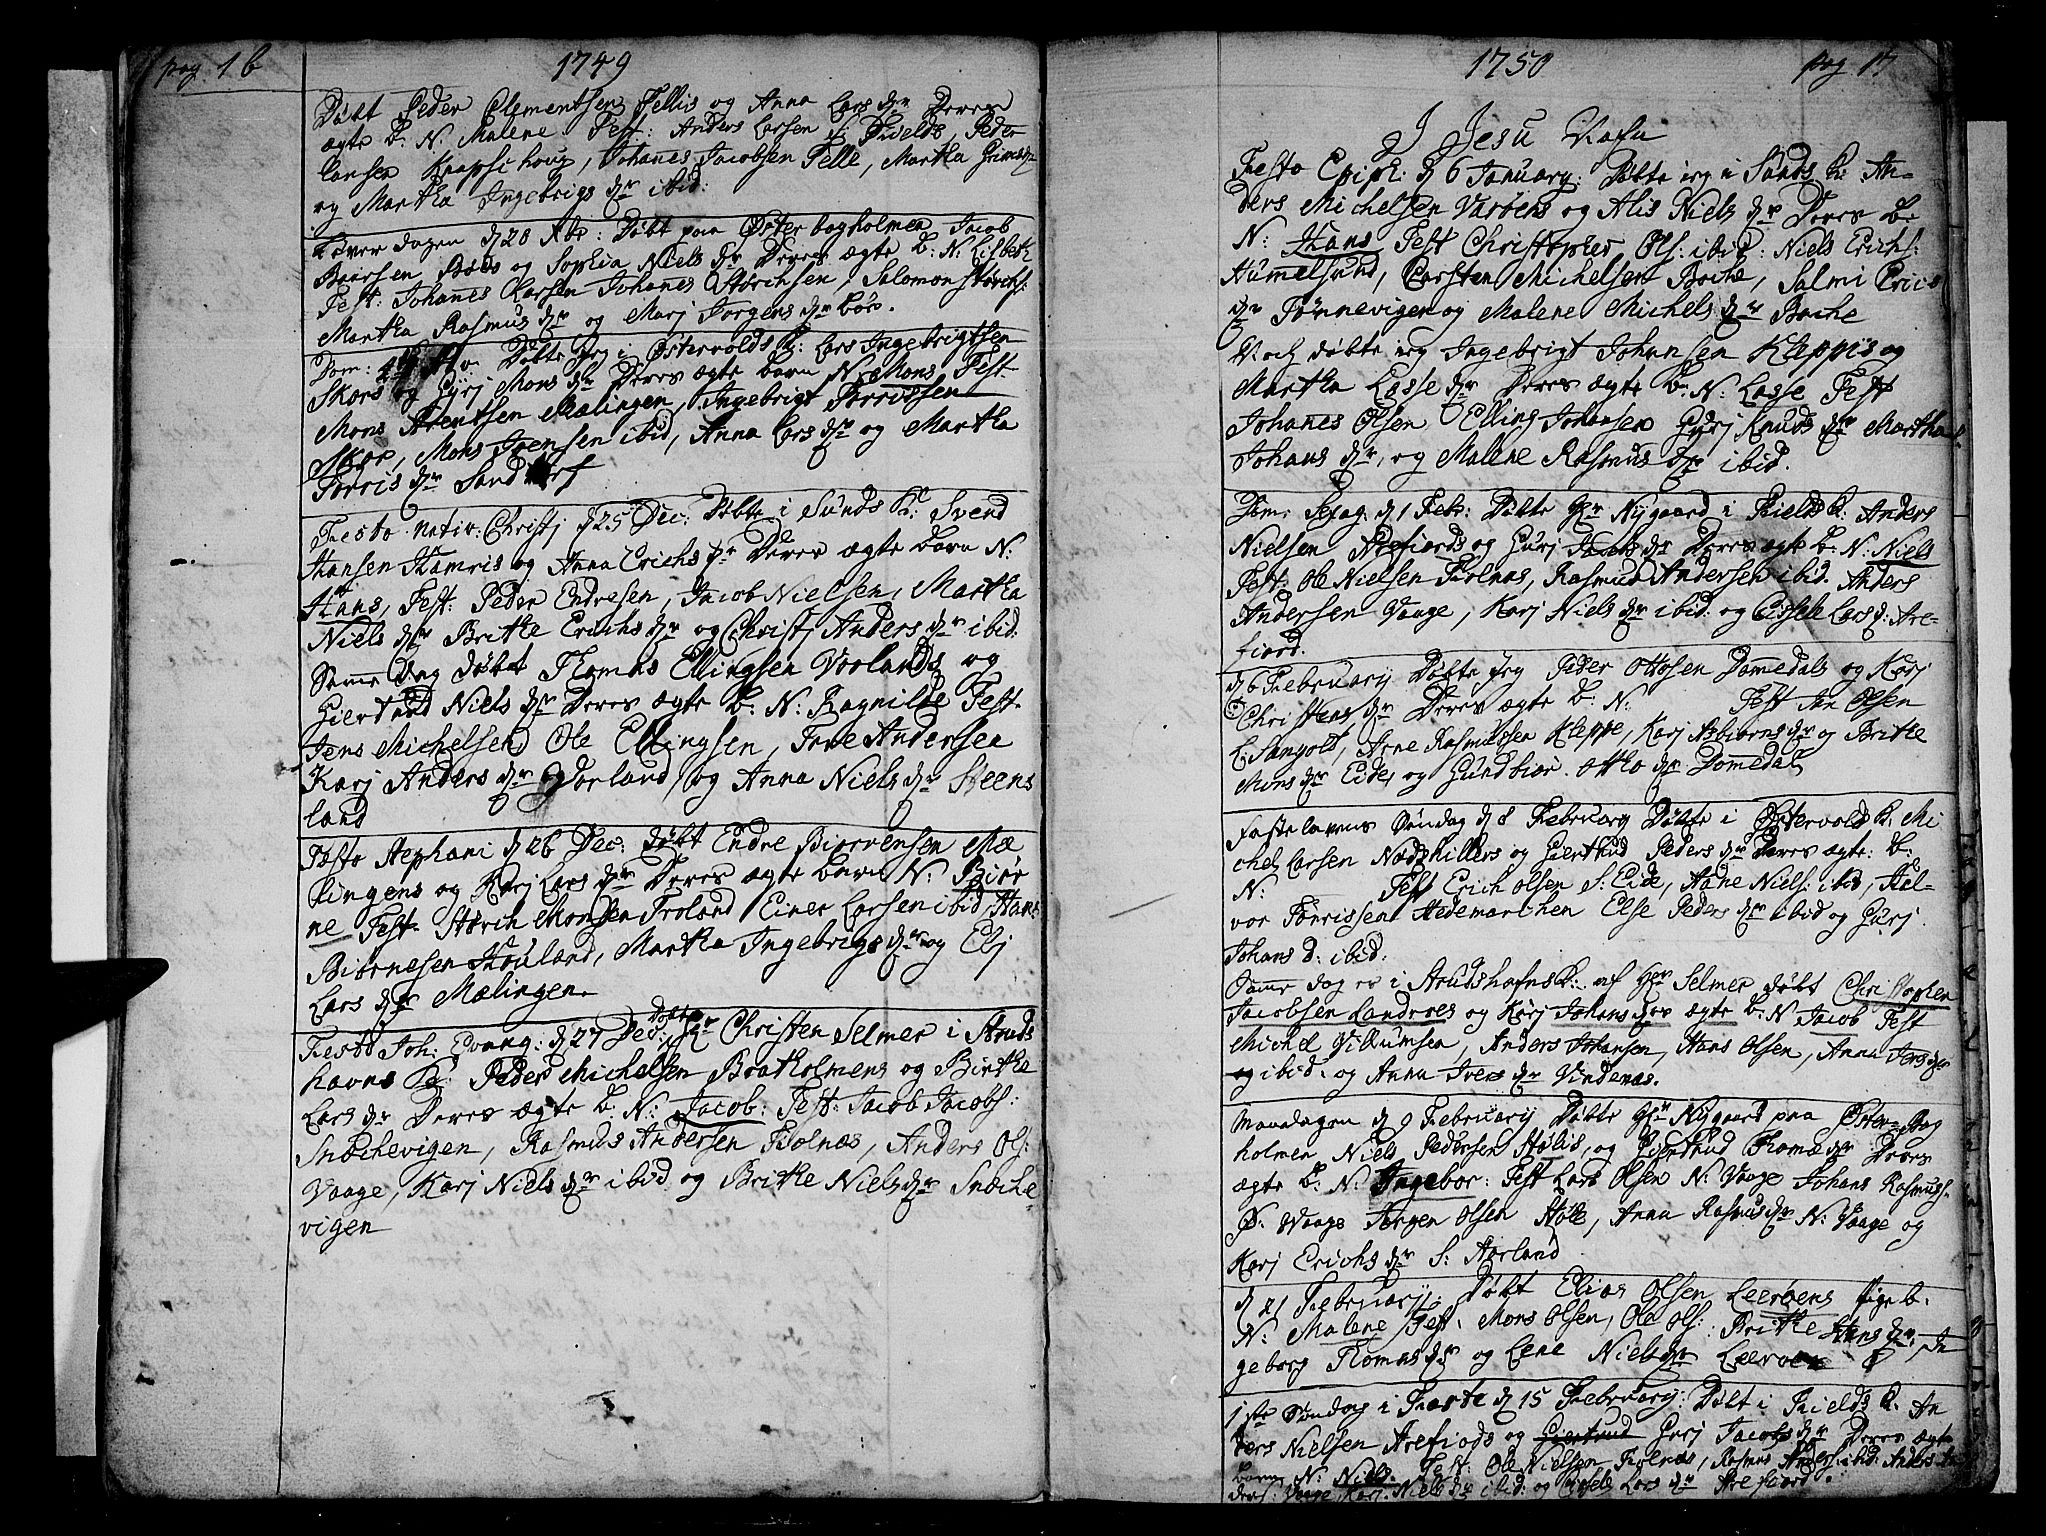 pag. 16
1749
Døbt Peder Clementsen Tellis og Anna Lars dr Deres
ægte b: N. Malene Test: Anders Larsen S: Peder
Larsen Knapschoug, Johanes Jacobsen Telle, Martha Grims dr
og Martha Ingebrigs dr ibid:
Løverdagen d 20 Xbr: Døbt paa Østerbogholmen Jacob
Baarsen Bøes og Sophia Niels dr Deres ægte B: N. Lisbeth
Test: Johanes Larsen Johanes Størchsen, Salomon Størchs:
Martha Rasmus dr og Marj Jorgens dr bøe.
Dom: 4 Adv. Døbte Jeg i Østervolds K: Lars Ingebrigtsen
Skors og Gurj Mons dr Deres ægte barn N. Mons Test
Mons Arentsen Mælingen, Ingebrigt Torrissen
Skor, Mons Jrensen ibid, Anna Lars dr og Martha
Torris dr Sandtorf
Festo nativ: Christj d 25 Dec: Døbte i Sunds K: Svend
Hansen Hamris og Anna Erichs dr Deres ægte barn N:
Hans, Test: Peder Endresen, Jacob Nielsen, Martha
Niels dr Brithe Erichs dr og Christj Anders dr ibid:
Same Dag døbt Thomas Ellingsen Vorlands og
Giertrud Niels dr Deres ægte b. N: Ragnilde Test.
Jens Michelsen Ole Ellingsen, Arne Andersen
Karj Anders dr Vorland, og Anna Niels dr Steens
land
Festo Stephani d 26 Dec: døbt Endre Biørvensen Mæ
lingens og Karj Lars dr Deres ægte barn N: Biør
ne Test. Størch Monsen Troland Einer Larsen ibid, Hans
Biørnesen Houland, Martha Ingebrigs dr og Elj
Lars dr Mælingen.
Festo Joh: Evang: d 27 Dec: døbte Hr Christen Selmer i Struds
havns K: Peder Michelsen Bratholmens og Birthe
Lars dr Deres ægte b. N: Jacob: Test: Jacob Jacobs:
Snechevigen, Rasmus Andersen Tiolnæs, Anders Ols:
Vaage, Karj Niels dr ibid og Brithe Niels dr Sneche
vigen
1750
pag 17
J Jesu Nafn
Festo Epiph: d 6 January: Døbte ieg i Sunds K: An-
ders Michelsen Varøens og Alis Niels dr Deres b:
N: Hans Test Christopher Ols: ibid: Niels Erichs:
Hummelsund, Carsten Michelsen Boche, Salmi Erics
dr Tønnevigen og Malene Michels dr Boche
Noch døbte ieg Ingebrigt Johansen Kleppis og
Martha Lasse dr Deres ægte b. N. Lasse Test
Johanes Olsen, Elling Johansen Gurj Knuds dr Martha
Johans dr, og Malene Rasmus dr ibid.
Dom: Sexag: d 1 Feb: Døbte Hr Nygaard i Fields K: Anders
Nielsen Arefiords og Gurj Jacobs dr Deres ægte b: N: Niels
Test: Ole Nielsen Tiolnas, Rasmus Andersen ibid. Anders
Andersen Vaage, Karj Niels dr ibid: og Cissele Lars d: Are-
fiord.
d 6 February Døbte Jeg Peder Ottosen Domedals og Karj
Christens dr Deres ægte b: N. Test Jan Olsen
L: Sangolt, Arne Rasmussen Kleppe, Karj Asbiørns dr og Brithe
Mons dr Eide, og Gundbiør Otto dr Domedal
Fastelavens Søndag d 8 February Døbte i Østervold K. Mi
chel Larsen Nødshillers og Gierthrud Peders dr Deres ægte: b:
N: Test Erich Olsen S: Eide, Aane Niels: ibid, Hal-
vor Tørrissen Hedemarchen Else Peders dr ibid og Gurj
Johans d: ibid:
Same dag er i Strudshafns K: af Hr Selmer døbt Christopher
Jacobsen Landroes og Karj Johans dr ægte b. N Jacob Test
Michel Villumsen, Anders Johansen, Hans Olsen, Anna Jens dr
og ibid: og Anna Ivers dr Vindenæs.
Mandagen d 9 February Døbte Hr Nygaard paa Øster-Bog
holmen Niels Pedersen Støllis, og Giertrud Thomæ dr Deres
ægte b: N: Ingebor: Test Lars Olsen N: Vaage Johans Rasmuss:
S. Vaage Jørgen Olsen Støle, Anna Rasmus dr N: Vaage og
Karj Erichs dr S: Aarland
d 21 February: Døbt Elias Olsen Leerøens Pige b.
N: Malene Test. Mons Olsen, Ole Ols: Brithe Hans dr: In
geborg Thomas dr og Lene Niels dr Leeroen
1ste Søndag i Faste d 15 February: Døbt i Fields K. An
ders Nielsen Arefiods og Giertrud Gurj Jacobs dr Deres ægte
barn N: Niels. Test: Ole Nielsen Tiolnæs, Rasmus Anders: ibid: Anders An
ders: Vaage Karj Niels dr ibid: og Cissele Lars dr Arefiord.